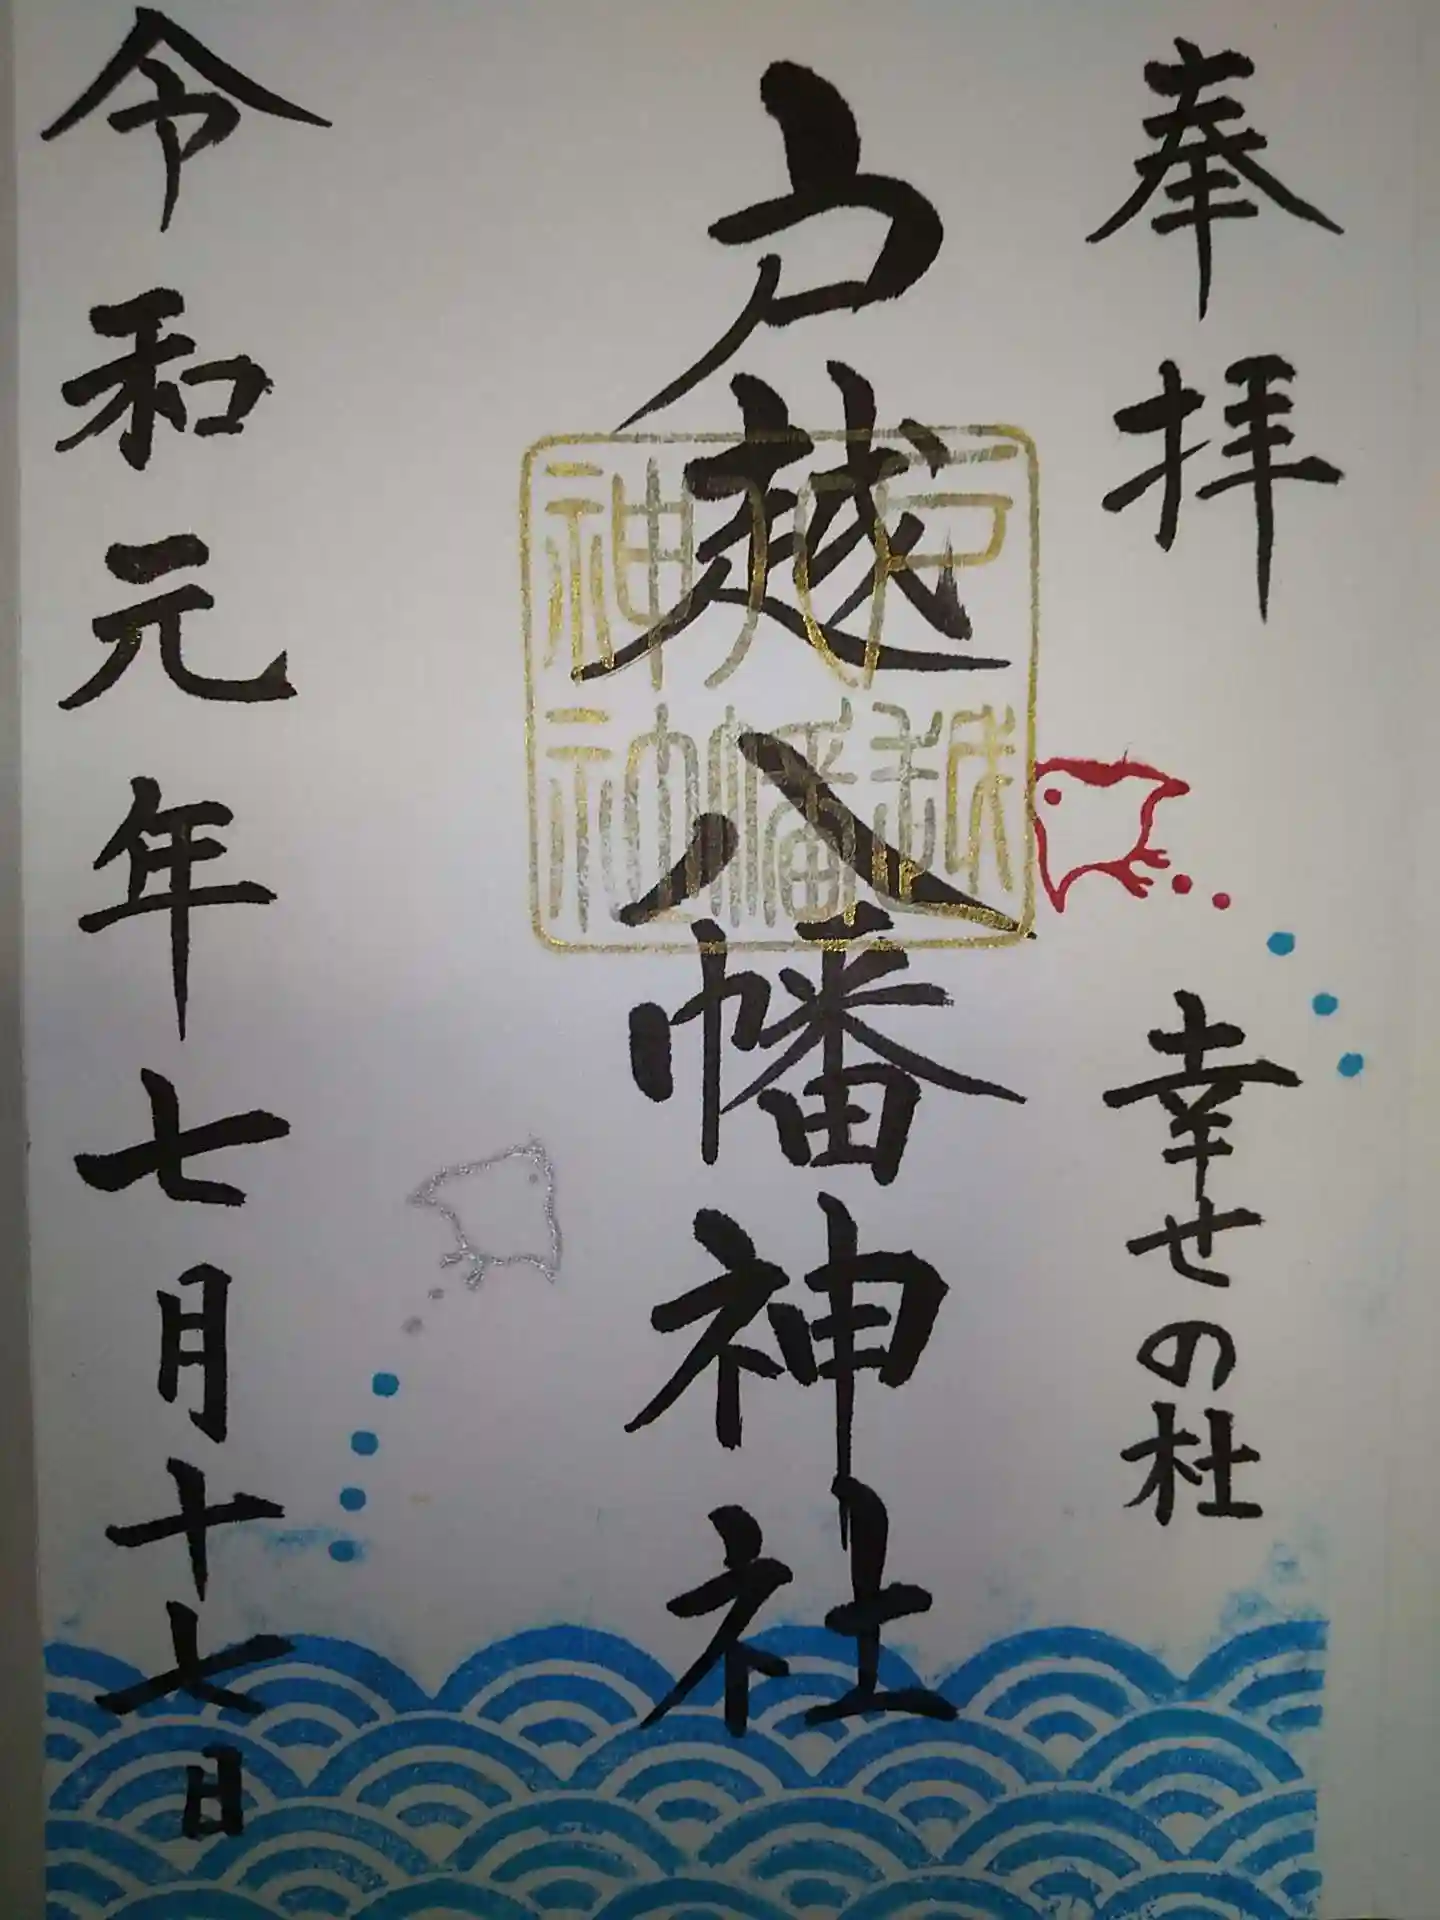 奉拝
幸せの杜
戸越八幡神社
戸越
八幡
神社
令和元年七月十七日